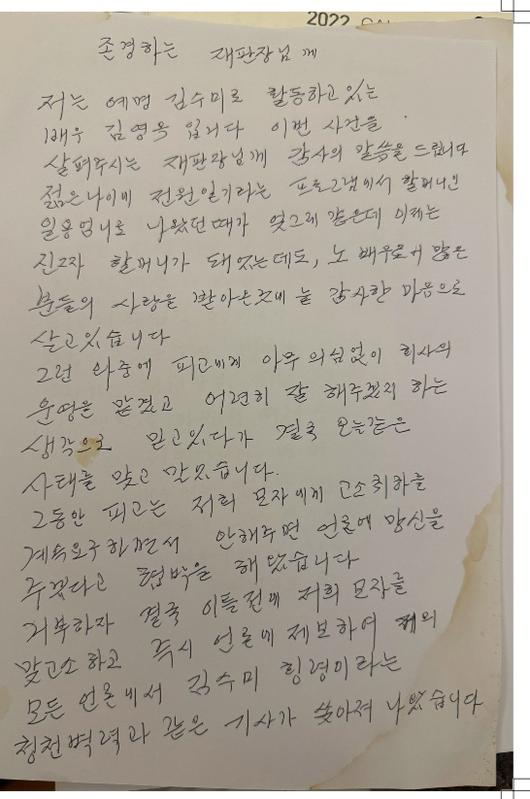 2022
존경하는 재판장님께
저는 예명 김수미로 활동하고 있는
배우 김영옥 입니다 이번 사건을
살펴주시는 재판장님께 감사의 말씀을 드립니다
젊은나이에 전원일기라는 프로그램에서 할머니인
일용엄니로 나왔던때가 엊그제 같은데 이제는
진짜 할머니가 돼었는데도, 노 배우로서 많은
분들의 사랑을 받아온것에 늘 감사한 마음으로
살고있습니다
그런 와중에 피고에게 아무 의심없이 회사의
운영을 맡겼고 어련히 잘 해주겠지 하는
생각으로 믿고있다가 결국 오늘같은
사태를 맞고 말았습니다.
그동안 피고는 저희 모자에게 고소취하를
계속요구하면서 안해주면 언론에 망신을
주겠다고 협박을 해 왔습니다
거부하자 결국 이틀전에 저희 모자를
맞고소하고 즉시 언론에 제보하여
모든 언론에서 김수미 횡령이라는
청천벽력과 같은 기사가 쏟아져 나왔습니다